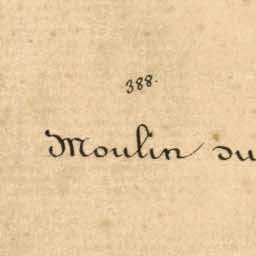 388.
Moulin su